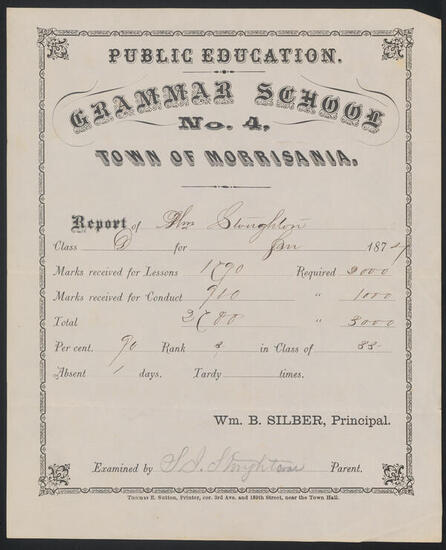 PUBLIC EDUCATION.
GRAMMAR SCHOOL
No. 4,
TOWN OF MORRISANIA,
Report of Wm Stoughton
Class D for Jan 1874
Marks received for Lessons 1790 Required 2000
Marks received for Conduct 910 " 1000
Total 2700 " 3000
Per cent. 90 Rank in Class of 33
Absent 1 days. Tardy times.
Wm. B. SILBER, Principal.
Examined by Stoughton Parent.
Thomas E. Sutton, Printer, cor. 3rd Ave. and 169th Street, near the Town Hall.